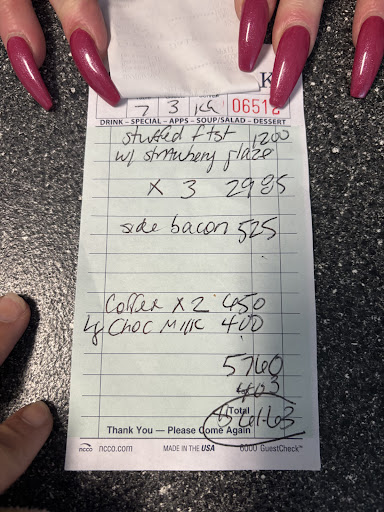 K
7 3 Ka 06512
DRINK - SPECIAL - APPS - SOUP/SALAD - DESSERT
stuffed ftst 1200
w/ strawberry glaze
x 3 2985
side bacon 525
Coffee x 2 450
Lg Choc Milk 400
5760
403
Total
61.63
Thank You — Please Come Again
ncco ncco.com MADE IN THE USA 6000 GuestCheck™